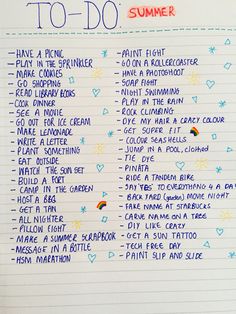 TO-DO: SUMMER
- HAVE A PICNIC
- PLAY IN THE SPRINKLER
- MAKE COOKIES
- GO SHOPPING
- READ LIBRARY BOOKS
- COOK DINNER
- SEE A MOVIE
- GO OUT FOR ICE CREAM
- MAKE LEMONADE
- WRITE A LETTER
- PLANT SOMETHING
- EAT OUTSIDE
- WATCH THE SUN SET
- BUILD A FORT
- CAMP IN THE GARDEN
- HOST A BBQ
- GET A TAN
- ALL NIGHTER
- PILLOW FIGHT
- MAKE A SUMMER SCRAPBOOK
- MESSAGE IN A BOTTLE
- HSM MARATHON
- PAINT FIGHT
- GO ON A ROLLERCOASTER
- HAVE A PHOTOSHOOT
- SOAP FIGHT
- NIGHT SWIMMING
- PLAY IN THE RAIN
- ROCK CLIMBING
- DYE MY HAIR A CRAZY COLOUR
- GET SUPER FIT
- COLOUR SEASHELLS
- JUMP IN A POOL, CLOTHED
- TIE DYE
- PINATA
- RIDE A TANDEM BIKE
- SAY YES TO EVERYTHING 4 A DAY
- BACK YARD (garden) MOVIE NIGHT
- FAKE NAME AT STARBUCKS
- CARVE NAME ON A TREE
- DIY LIKE CRAZY
- GET A SUN TATTOO
- TECH FREE DAY
- PAINT SLIP AND SLIDE